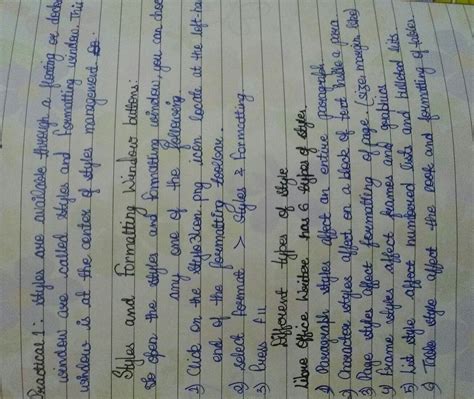 Practical 1: Styles are available through a floating or dock
window are called styles and Formatting window. This
window is at the center of styles management
Styles and Formatting Window buttons:
To open the styles and formatting window, you can choo
any one of the following.
1) Click on the Style3icon.png icon locate at the left-ha
end of the formatting toolbar.
2) Select Format > Styles & Formatting.
3) Press F11
Different types of Style
Libre Office Writer has 6 types of styles.
1) Paragraph styles affect an entire paragraph
2) Character styles affect on a block of text inside a para
3) Page styles affect formatting of page (size, margin,
4) Frame styles affect frames and graphics
5) List style affect numbered lists and bulleted lists
6) Table style affect the look and formatting of tables